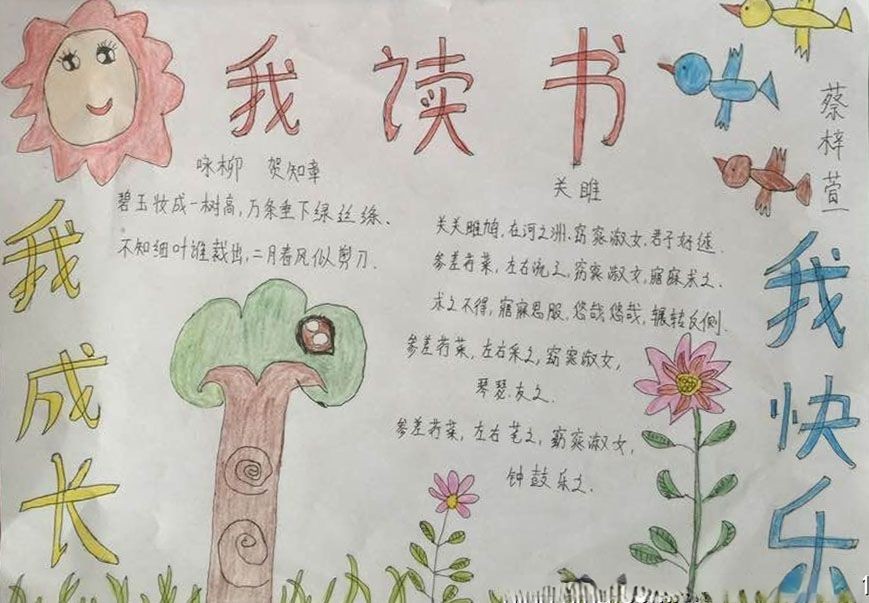 我读书
蔡梓萱
我成长
我快乐
咏柳 贺知章
碧玉妆成一树高,万条垂下绿丝绦、
不知细叶谁裁出,二月春风似剪刀.
关雎
关关雎鸠,在河之洲.窈窕淑女,君子好逑.
参差荇菜,左右流之,窈窕淑女,寤寐求之.
求之不得,寤寐思服,悠哉悠哉,辗转反侧.
参差荇菜,左右采之,窈窕淑女,
琴瑟友之.
参差荇菜,左右芼之,窈窕淑女,
钟鼓乐之.
1